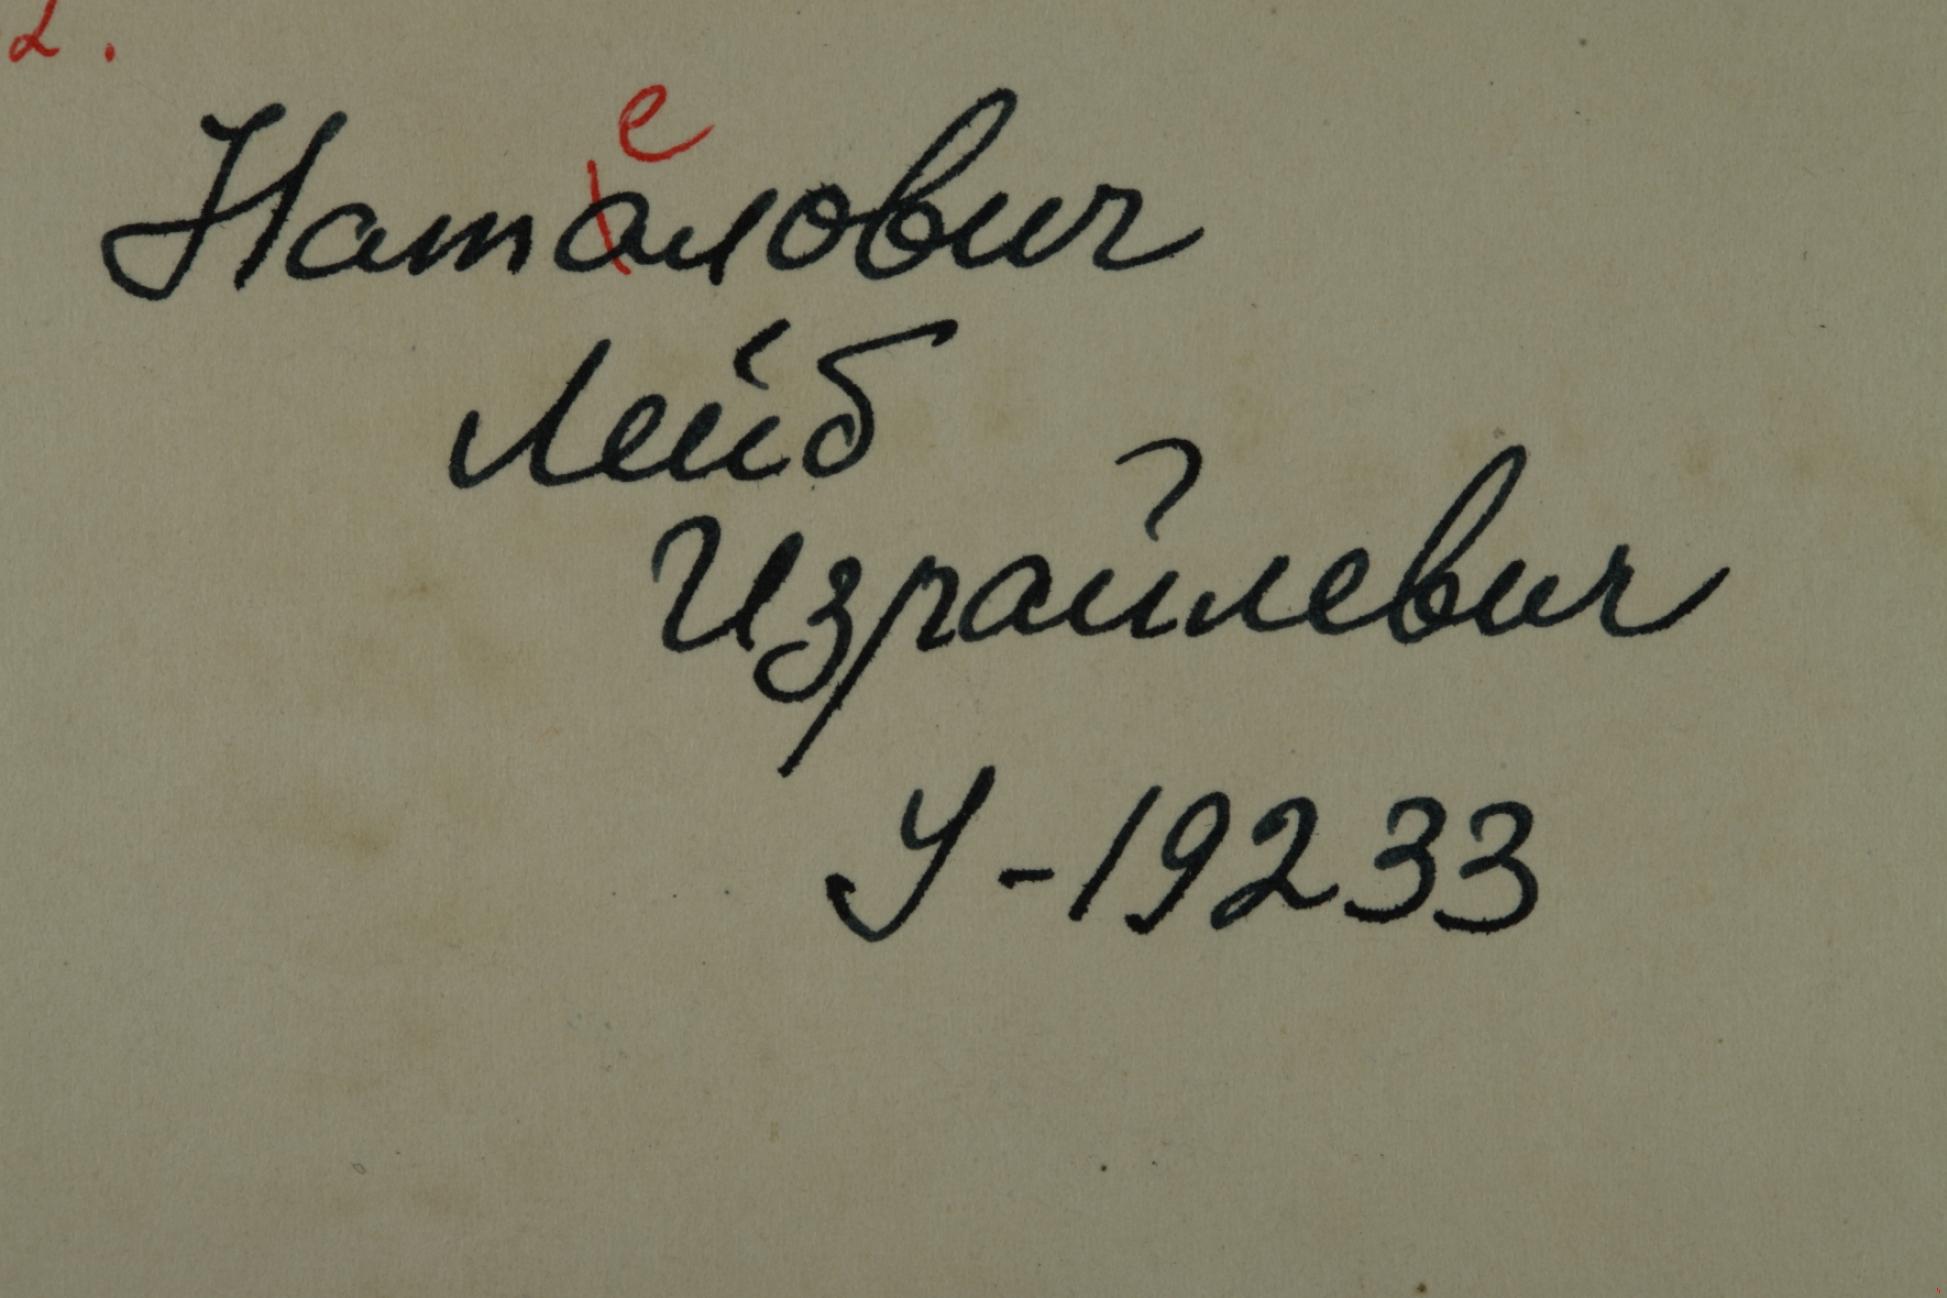 2.
е
Наталович
Лейб
Израйлевич
У-19233